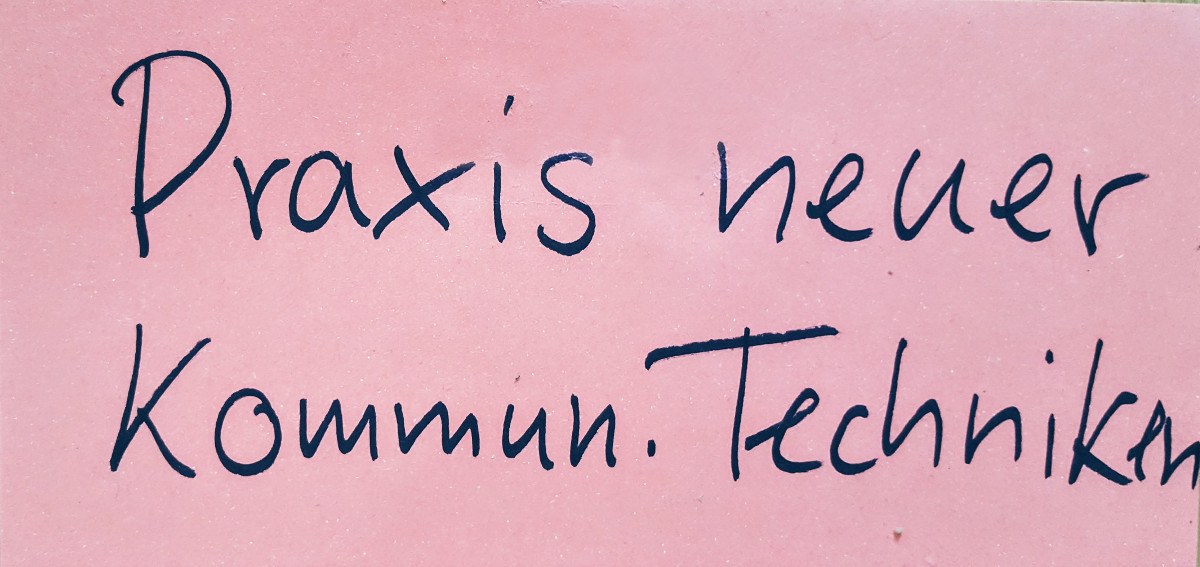 Praxis neuer
Kommun. Techniken